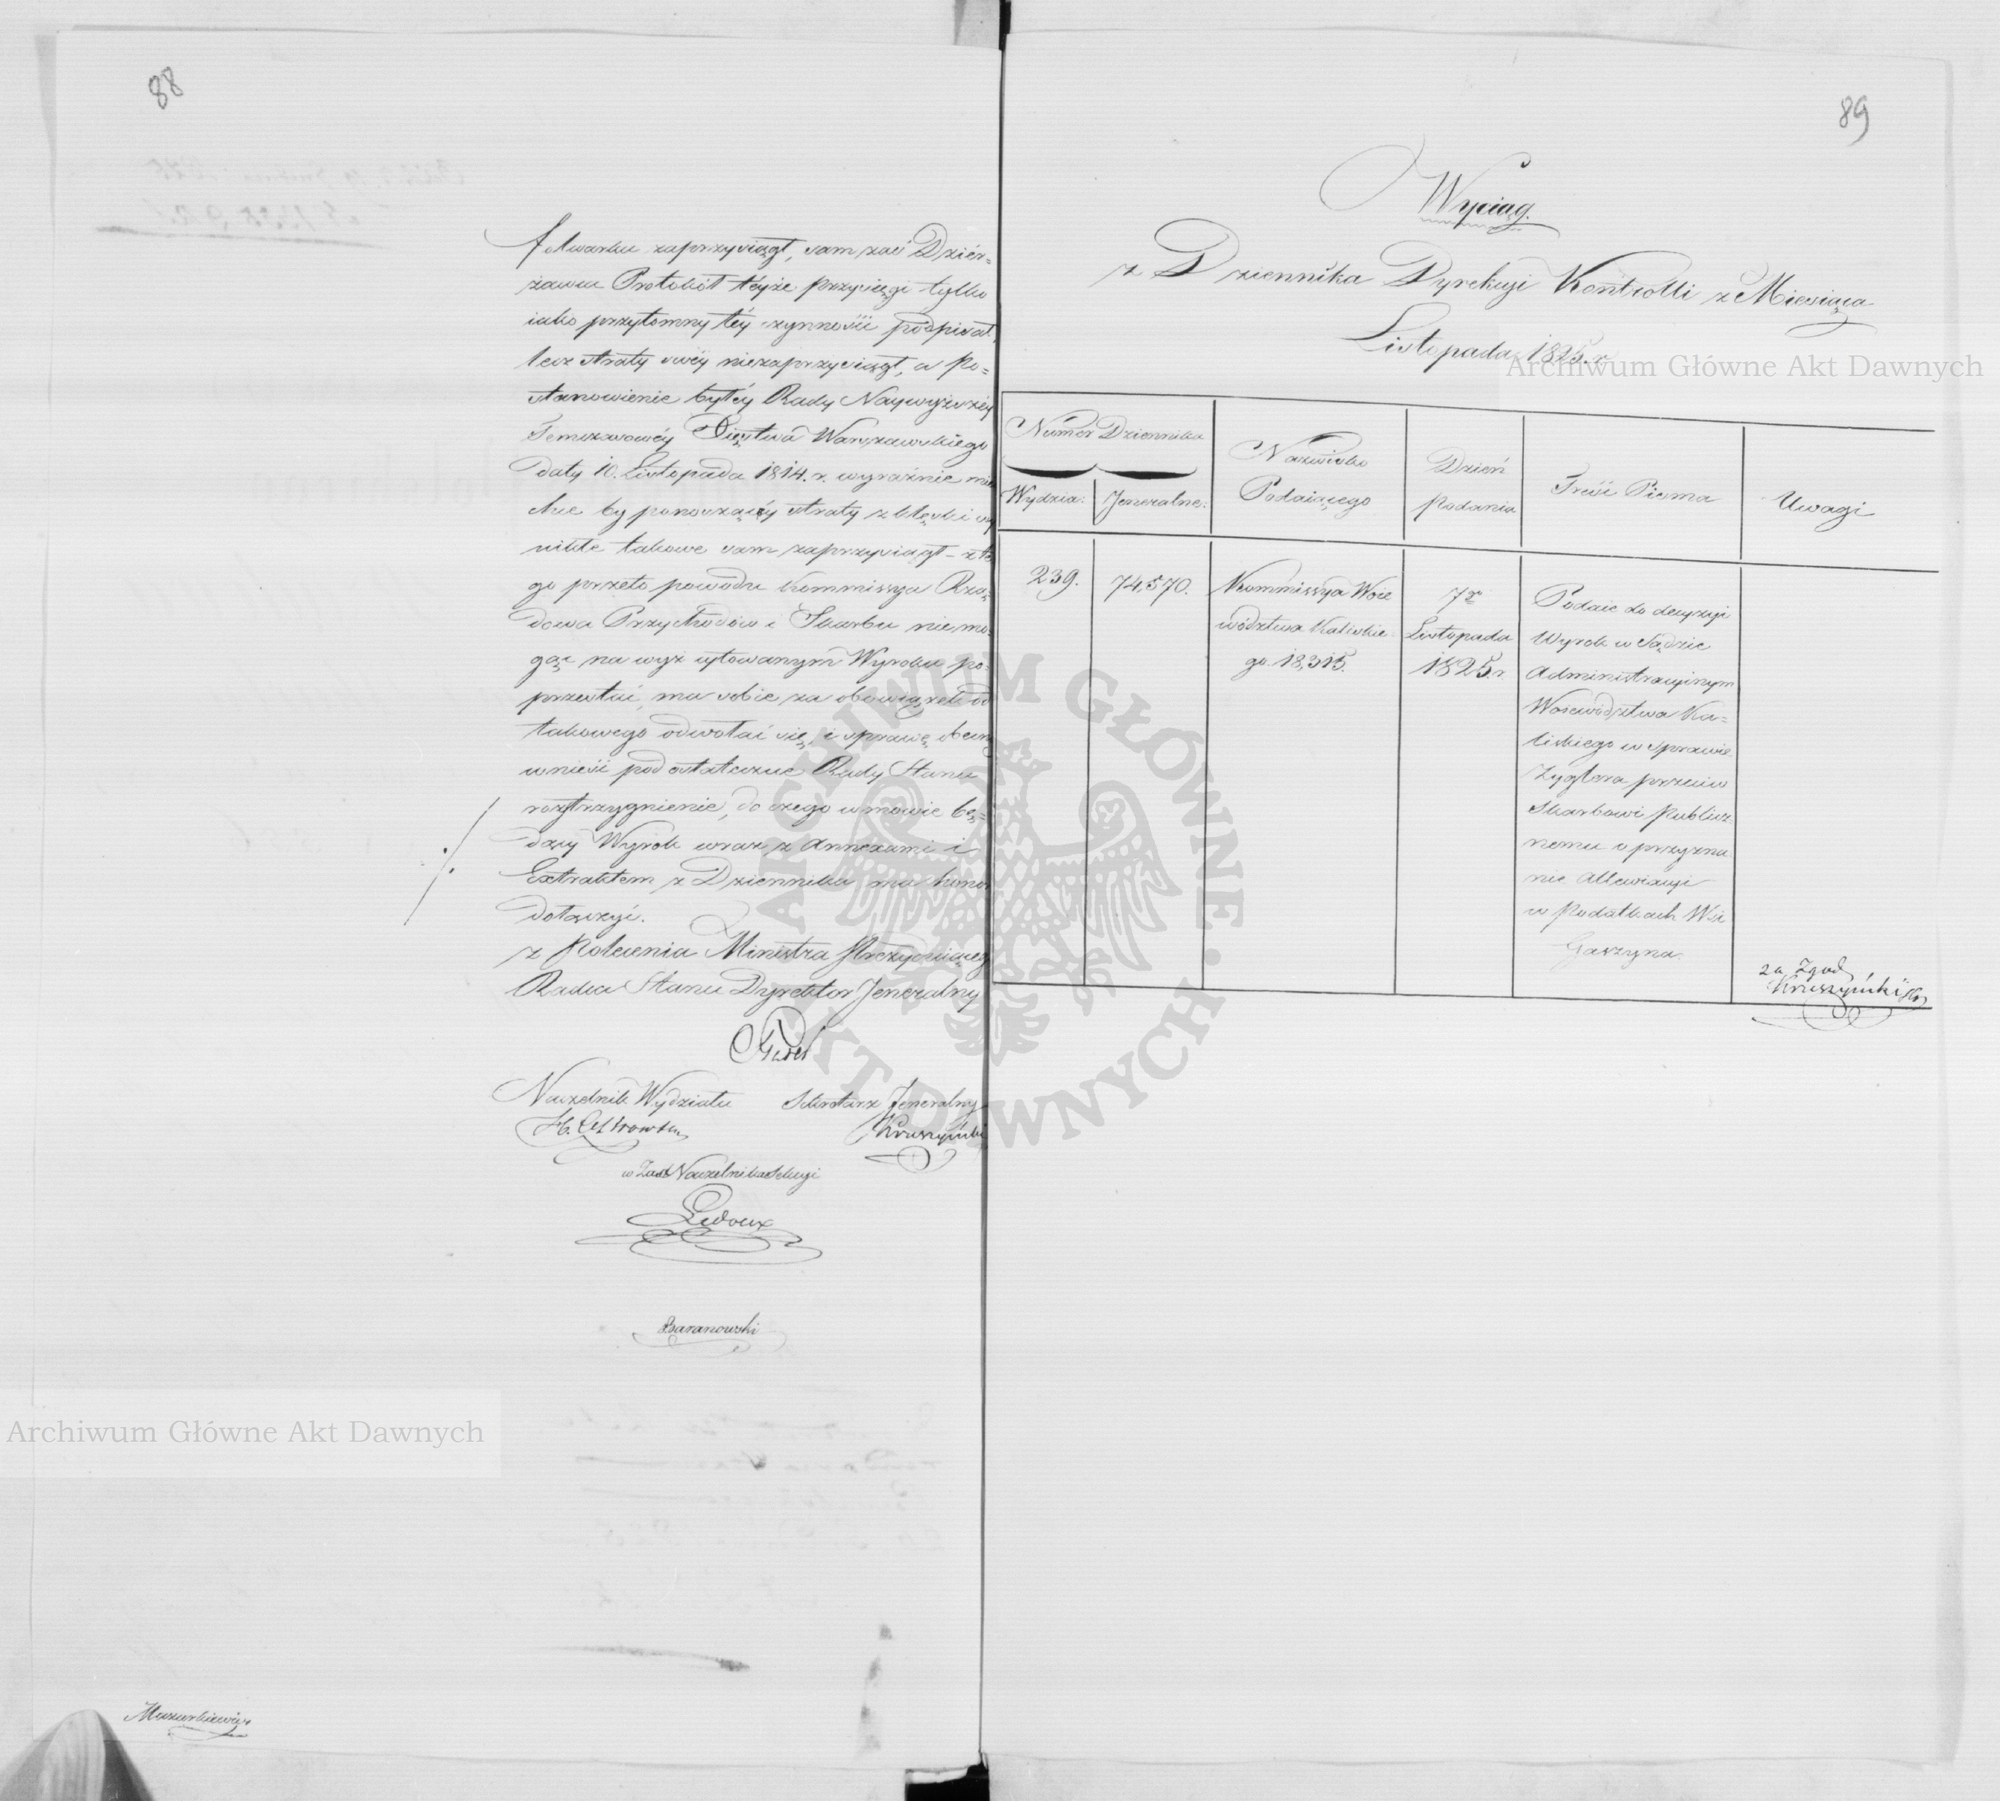 88
folwarku zaprzysiągł, sam zaś Dzier=
żawca Protokół téyże przysięgi tylko
iako przytomny téy czynności podpisał,
lecz straty swéy niezaprzysiągł, a Po=
stanowienie byłéy Rady Naywyższéy
Temczasowéy Xięstwa Warszawskiego
daty 10. Listopada 1814. r. wyraźnie
chce by ponoszący straty z klęski wy
nikłe takowe sam zaprzysiągł – z te
go przeto powodu Kommissya Rzą=
dowa Przychodów i Skarbu nie mo=
gąc na wyż cytowanym Wyroku po
przestać, ma sobie za obowiązek od
takowego odwołać się, i sprawę obecną
wnieść pod ostateczne Rady Stanu
rozstrzygnienie, do czego w mowie bę=
dący Wyrok wraz z Annexami i
Extraktem z Dziennika ma honor
dołączyć.
z Polecenia Ministra Prezyduiącego
Radca Stanu Dyrektor Jeneralny
Naczelnik Wydziału Sekretarz Jeneralny
Kruszyński
w Zast Naczelnika Sekcyi
Ledoux
Baranowski
Mazurkiewicz
Archiwum Główne Akt Dawnych
89
Wyciąg
z Dziennika Dyrekcyi Kontrolli z Miesiąca
Listopada 1825. r.
Archiwum Główne Akt Dawnych
Numer Dziennika
Wydzia: Jeneralne:
Nazwisko
Podaiącego
Dzień
Podania
Treść Pisma
Uwagi
239.
74,570.
Kommissya Woie
wództwa Kaliskie
go. 18,315.
7º
Listopada
1825. r.
Podaie do decyzyi
Wyrok w Sądzie
Administracyinym
Woiewództwa Ka=
liskiego w Sprawie
Zyglera przeciw
Skarbowi Publicz
nemu o przyzna
nie Allewiacyi
w Podatkach Wsi
Gaszyna
za Zgod
Kruszyński
ARCHIWUM GŁÓWNE · AKT DAWNYCH ·